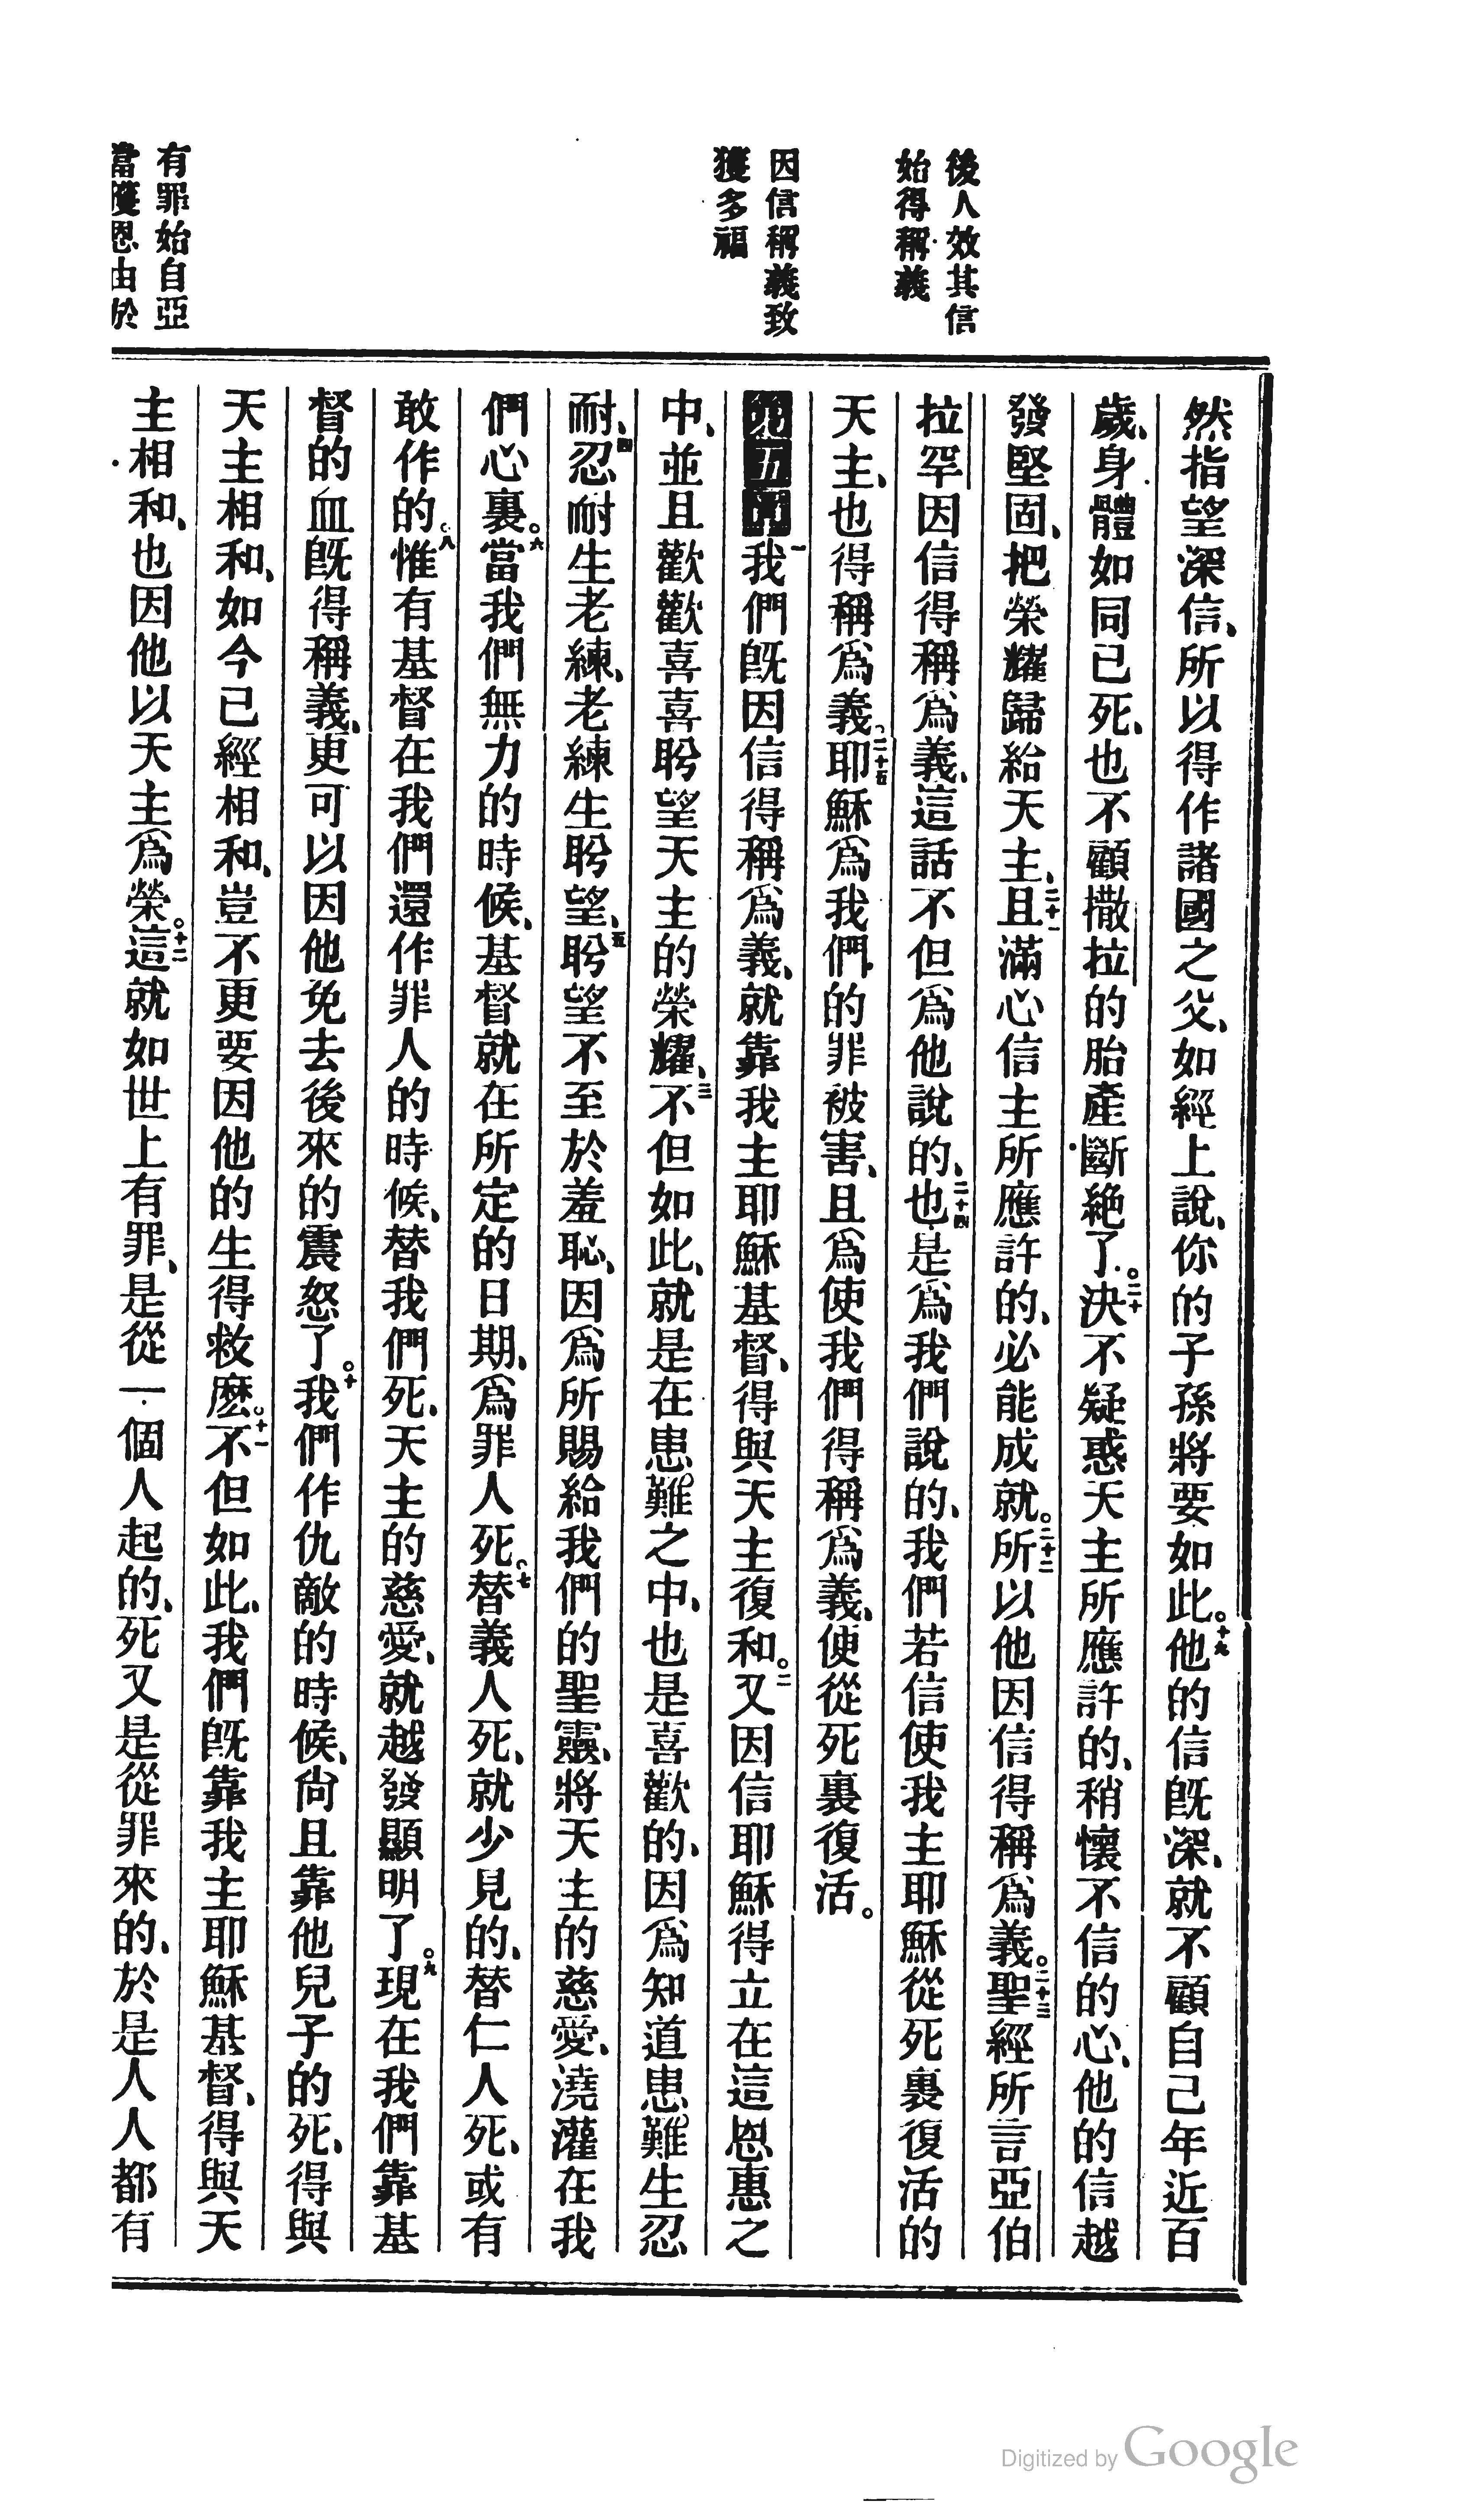 後人效其信
始得稱義
因信稱義致
獲多福
有罪始自亞
當獲恩由於
然指望深信、所以得作諸國之父、如經上說、你的子孫將要如此。十九他的信既深、就不顧自己年近百
歲、身體如同已死、也不顧撒拉的胎產斷絕了。二十決不疑惑天主所應許的、稍懷不信的心、他的信越
發堅固、把榮耀歸給天主、二十一且滿心信主所應許的、必能成就。二十二所以他因信得稱爲義。二十三聖經所言亞伯
拉罕因信得稱爲義、這話不但爲他說的、二十四也是爲我們說的、我們若信使我主耶穌從死裏復活的
天主、也得稱爲義。二十五耶穌爲我們的罪被害、且爲使我們得稱爲義、使從死裏復活。
第五章一我們既因信得稱爲義、就靠我主耶穌基督、得與天主復和。二又因信耶穌得立在這恩惠之
中、並且歡歡喜喜盼望天主的榮耀、三不但如此、就是在患難之中、也是喜歡的、因爲知道患難生忍
耐、四忍耐生老練、老練生盼望、五盼望不至於羞恥、因爲所賜給我們的聖靈、將天主的慈愛、澆灌在我
們心裏。六當我們無力的時候、基督就在所定的日期、爲罪人死。七替義人死、就少見的、替仁人死、或有
敢作的。八惟有基督在我們還作罪人的時候、替我們死、天主的慈愛、就越發顯明了。九現在我們靠基
督的血既得稱義、更可以因他免去後來的震怒了。十我們作仇敵的時候、尙且靠他兒子的死、得與
天主相和、如今已經相和、豈不更要因他的生得救麽。十一不但如此、我們既靠我主耶穌基督、得與天
主相和、也因他以天主爲榮。十二這就如世上有罪、是從一個人起的、死又是從罪來的、於是人人都有
Digitized by Google